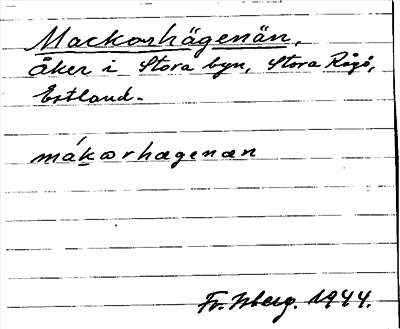 Mackorhägenän,
åker i Stora byn, Stora Rågö,
Estland.
mákorhægenæn
Fr. Isberg. 1944.